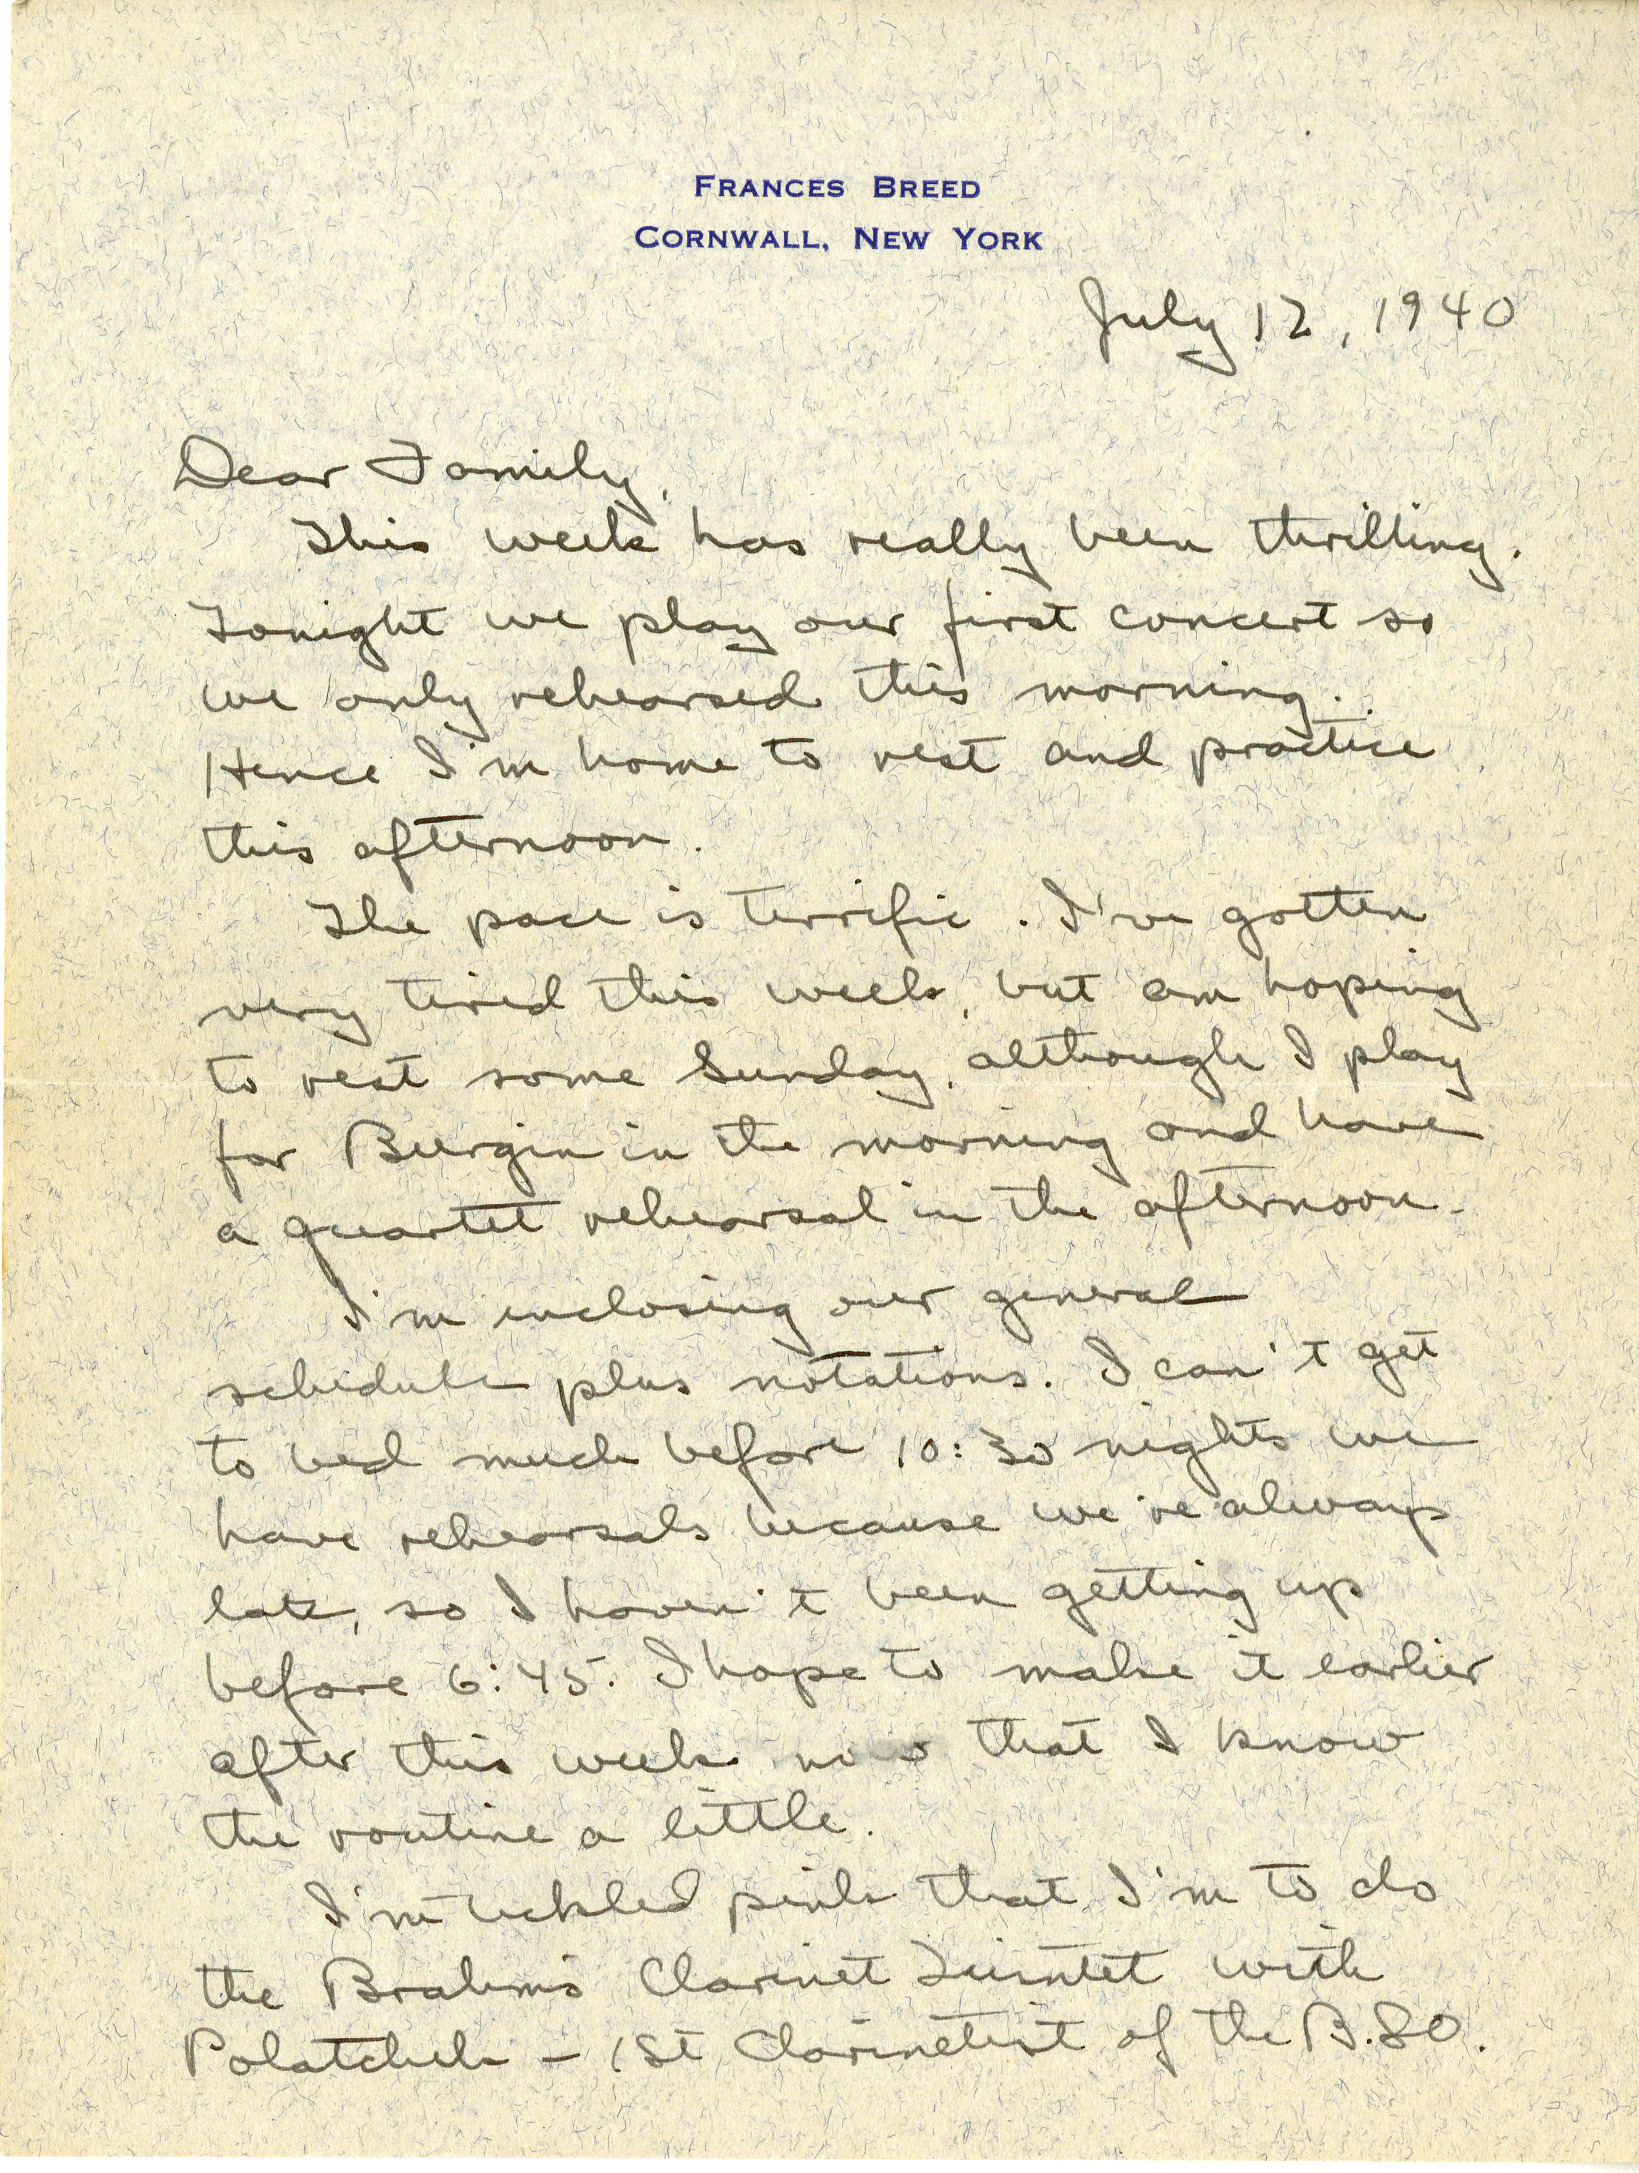 FRANCES BREED
CORNWALL, NEW YORK
July 12, 1940
Dear Family,
This week has really been thrilling.
Tonight we play our first concert so
we only rehearsed this morning.
Hence I'm home to rest and practice
this afternoon.
The pace is terrific. I've gotten
very tired this week, but am hoping
to rest some Sunday, although I play
for Burgin in the morning and have
a quartet rehearsal in the afternoon.
I'm inclosing our general
schedule plus notations. I can't get
to bed much before 10:30 nights we
have rehearsals because we're always
late, so I haven't been getting up
before 6:45. I hope to make it earlier
after this week now that I know
the routine a little.
I'm tickled pink that I'm to do
the Brahms Clarinet Quintet with
Polatchek - 1st Clarinetist of the B.SO.